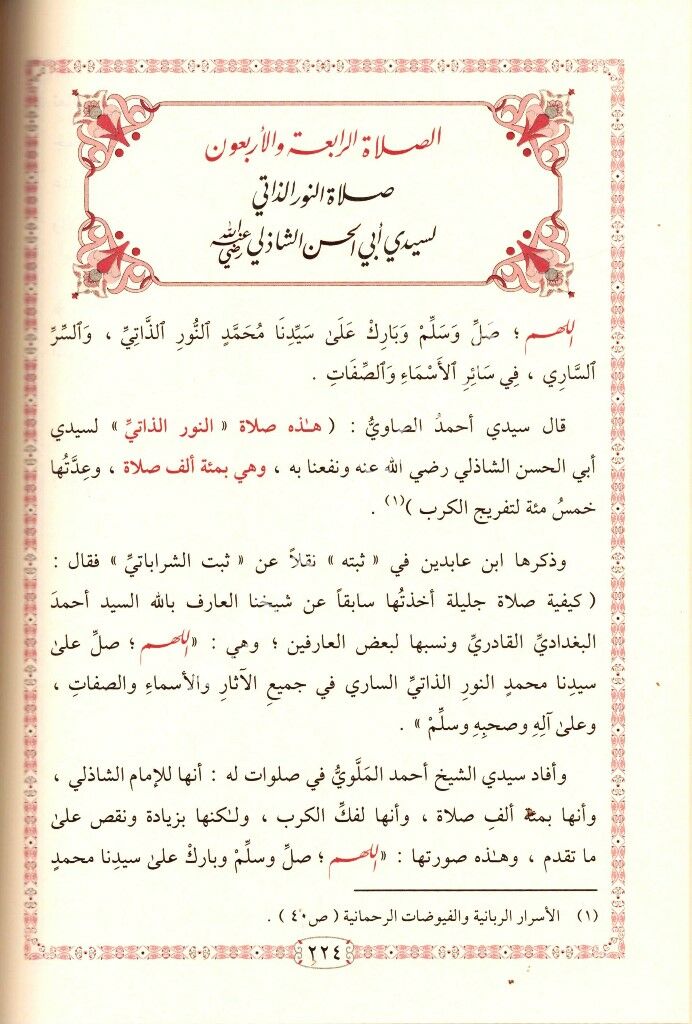 الصلاة الرابعة والأربعون
صلاة النور الذاتي
لسيدي أبي الحسن الشاذلي رضي الله عنه
اللهم ؛ صَلِّ وَسَلِّمْ وَبَارِكْ عَلَىٰ سَيِّدِنَا مُحَمَّدٍ ٱلنُّورِ ٱلذَّاتِيِّ ، وَٱلسِّرِّ
ٱلسَّارِي ، فِي سَائِرِ ٱلأَسْمَاءِ وَٱلصِّفَاتِ .
قال سيدي أحمدُ الصاويُّ : ( هـٰذه صلاة « النور الذاتيِّ » لسيدي
أبي الحسن الشاذلي رضي الله عنه ونفعنا به ، وهي بمئة ألف صلاة ، وعِدَّتُها
خمسُ مئة لتفريج الكرب )(١) .
وذكرها ابن عابدين في « ثبته » نقلاً عن « ثبت الشراباتيِّ » فقال :
( كيفية صلاة جليلة أخذتُها سابقاً عن شيخنا العارف بالله السيد أحمدَ
البغداديِّ القادريِّ ونسبها لبعض العارفين ؛ وهي : «اللهم ؛ صلِّ علىٰ
سيدِنا محمدٍ النورِ الذاتيِّ الساري في جميعِ الآثارِ والأسماءِ والصفاتِ ،
وعلىٰ آلِهِ وصحبِهِ وسلِّمْ » .
وأفاد سيدي الشيخ أحمد المَلَّويُّ في صلوات له : أنها للإمام الشاذلي ،
وأنها بمئة ألفِ صلاة ، وأنها لفكِّ الكرب ، ولـٰكنها بزيادة ونقص علىٰ
ما تقدم ، وهـٰذه صورتها : «اللهم ؛ صلِّ وسلِّمْ وباركْ علىٰ سيدِنا محمدٍ
(١) الأسرار الربانية والفيوضات الرحمانية ( ص٤٠ ) .
٢٢٤